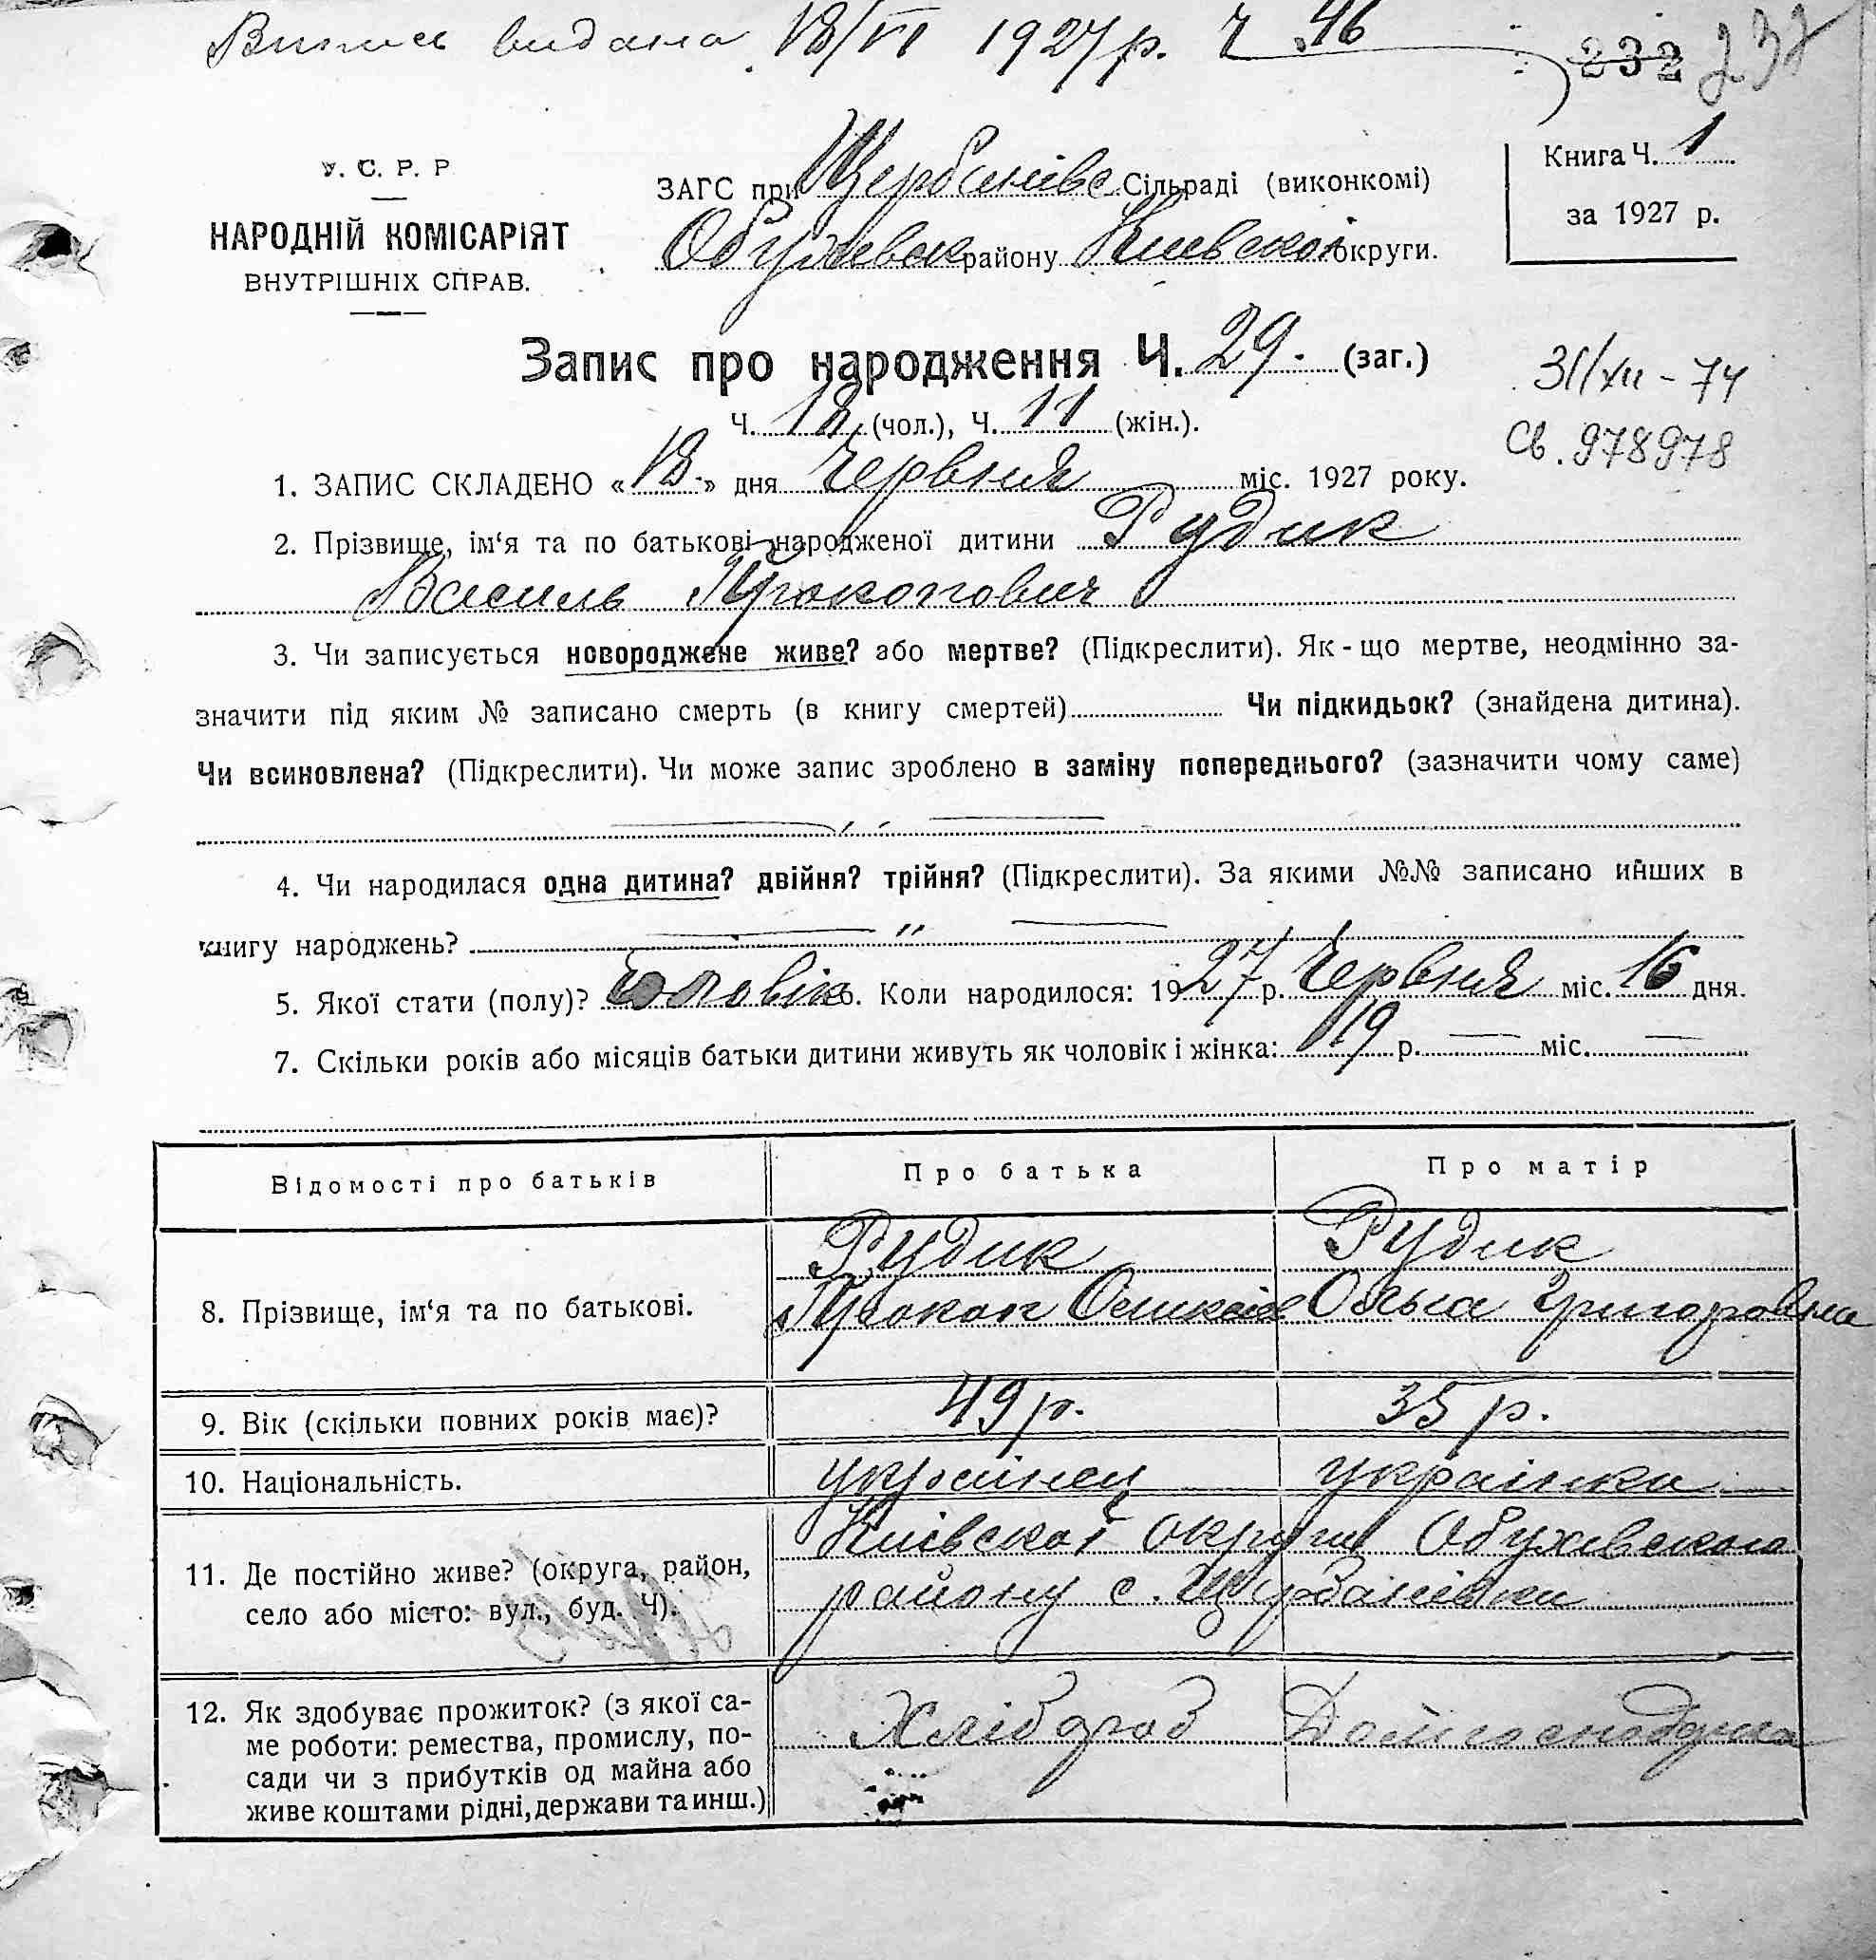 Випись видана 18/VI 1927 р. Ч 46
232 232
У. С. Р. Р
НАРОДНІЙ КОМІСАРІЯТ
ВНУТРІШНІХ СПРАВ.
ЗАГС при Щербанівс Сільраді (виконкомі)
Обухівск району Киевскоі округи.
Книга Ч. 1
за 1927 р.
Запис про народження Ч. 29. (заг.)
Ч. 18 (чол.), Ч. 11 (жін.).
31/XII - 74
Св. 978978
1. ЗАПИС СКЛАДЕНО «18» дня Червня міс. 1927 року.
2. Прізвище, ім‘я та по батькові народженої дитини Рудик
Василь Прокопович
3. Чи записується новороджене живе? або мертве? (Підкреслити). Як-що мертве, неодмінно за-
значити під яким № записано смерть (в книгу смертей) Чи підкидьок? (знайдена дитина).
Чи всиновлена? (Підкреслити). Чи може запис зроблено в заміну попереднього? (зазначити чому саме)
4. Чи народилася одна дитина? двійня? трійня? (Підкреслити). За якими №№ записано инших в
книгу народжень? — „ —
5. Якої стати (полу)? Чоловік 6. Коли народилося: 1927 р. Червня міс. 16 дня.
7. Скільки років або місяців батьки дитини живуть як чоловік і жінка: 19 р. — міс. —
Відомості про батьків Про батька Про матір
8. Прізвище, ім‘я та по батькові. Рудик Рудик
Прокоп Ольга Григоровна
9. Вік (скільки повних років має)? 49 р. 35 р.
10. Національність. украінец украінка
11. Де постійно живе? (округа, район,
село або місто: вул., буд. Ч).
Київскоі округи Обухівского
району с. Щербанівки
12. Як здобуває прожиток? (з якої са-
ме роботи: ремества, промислу, по-
сади чи з прибутків од майна або
живе коштами рідні, держави та инш.)
Хлібороб Домгосподарка